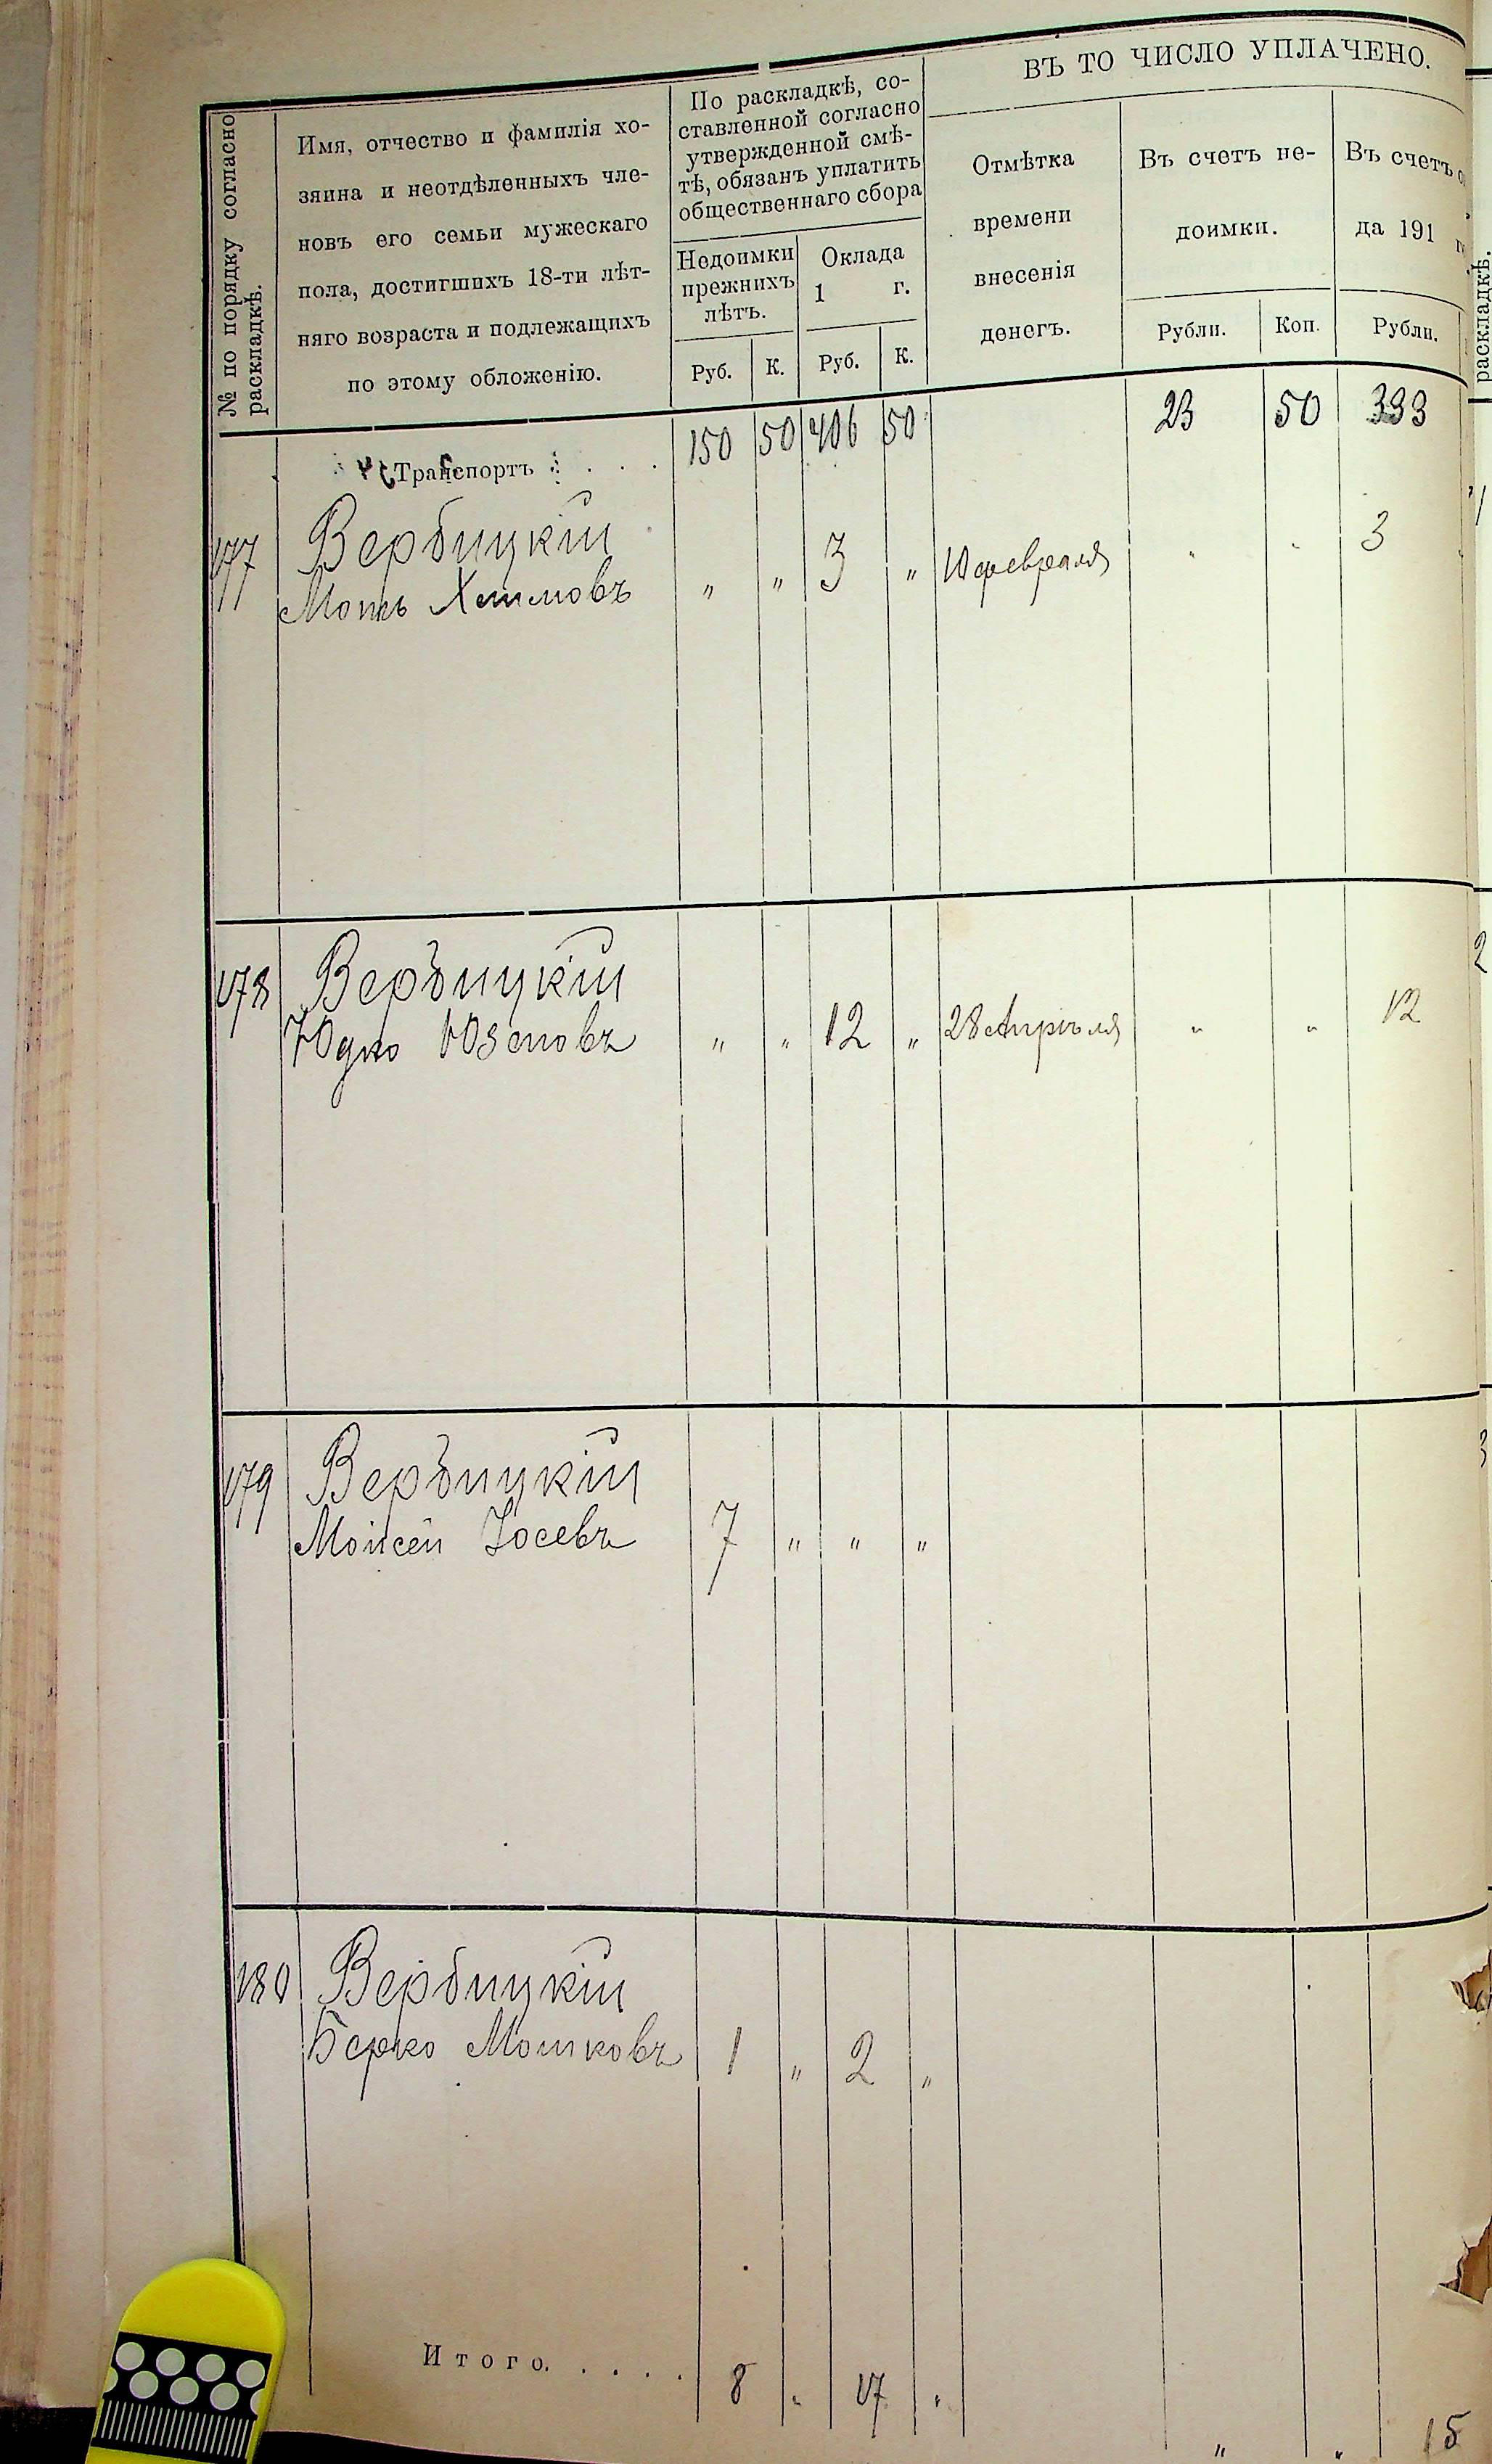 № по порядку согласно
раскладкѣ.
Имя, отчество и фамилія хо-
зяина и неотдѣленныхъ чле-
новъ его семьи мужескаго
пола, достигшихъ 18-ти лѣт-
няго возраста и подлежащихъ
по этому обложенію.
По раскладкѣ, со-
ставленной согласно
утвержденной смѣ-
тѣ, обязанъ уплатить
общественнаго сбора
Недоимки
прежнихъ
лѣтъ.
Оклада
1 г.
Руб. К. Руб. К.
ВЪ ТО ЧИСЛО УПЛАЧЕНО.
Отмѣтка
времени
внесенія
денегъ.
Въ счетъ не-
доимки.
Рубли. Коп.
Въ счетъ
да 191
Рубли.
раскладкѣ.
Транспортъ . . . 150 50 406 50 23 50 333
177 Вербицкій
Мотъ Хаимовъ " " 3 " 10 февраля " " 3
178 Вербицкій
Юдко Юзеповъ " " 12 " 28 Апрѣля " " 12
179 Вербицкій
Мойсей Іосевъ 7 " " "
180 Вербицкій
Берко Мошковъ 1 " 2 "
Итого. . . . . 8 " 17 " " " 15